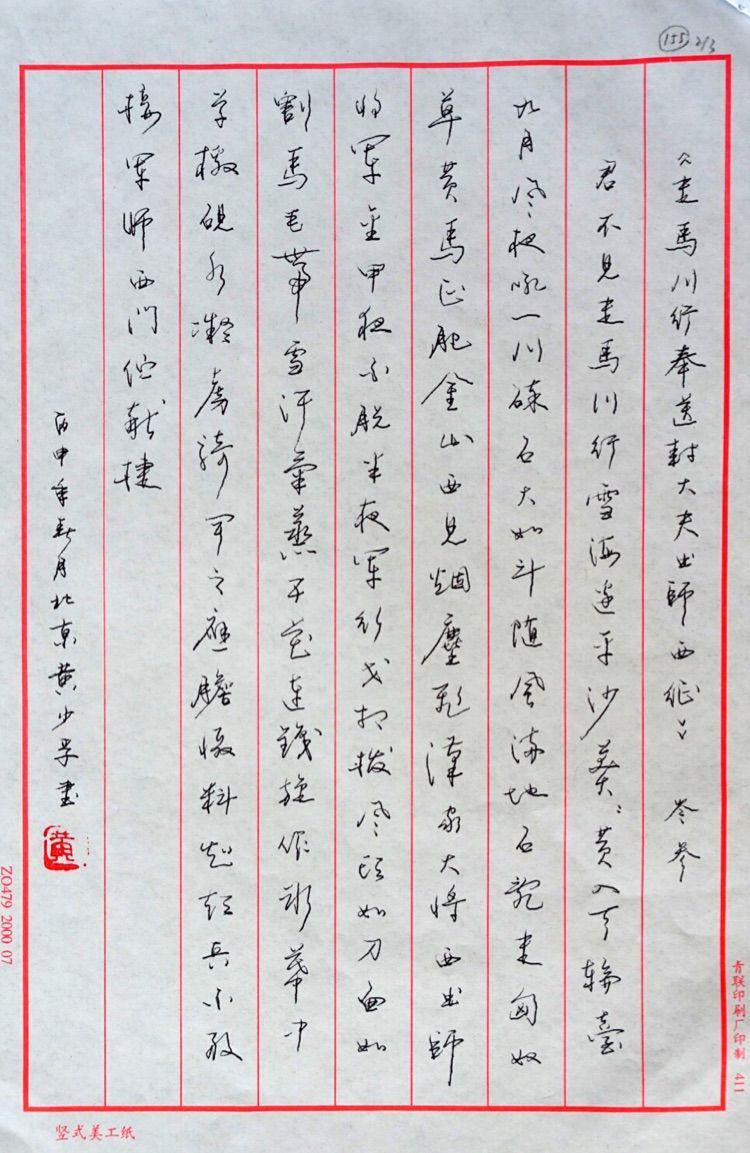 155 213
《走馬川行奉送封大夫出師西征》 岑参
君不見走馬川行雪海邊平沙莽〻黄入天輪臺
九月風夜吼一川碎石大如斗随風滿地石亂走匈奴
草黄馬正肥金山西見烟塵飛漢家大将西出師
将軍金甲夜不脱半夜軍行戈相撥風頭如刀面如
割馬毛帶雪汗氣蒸五花連錢旋作冰幕中
草檄硯水凝虜騎聞之應膽懾料知短兵不敢
接軍師西門佇獻捷
丙申年月北京黄少書
黄
青联印刷厂印制 411
竖式美工纸
ZO479 2000 07